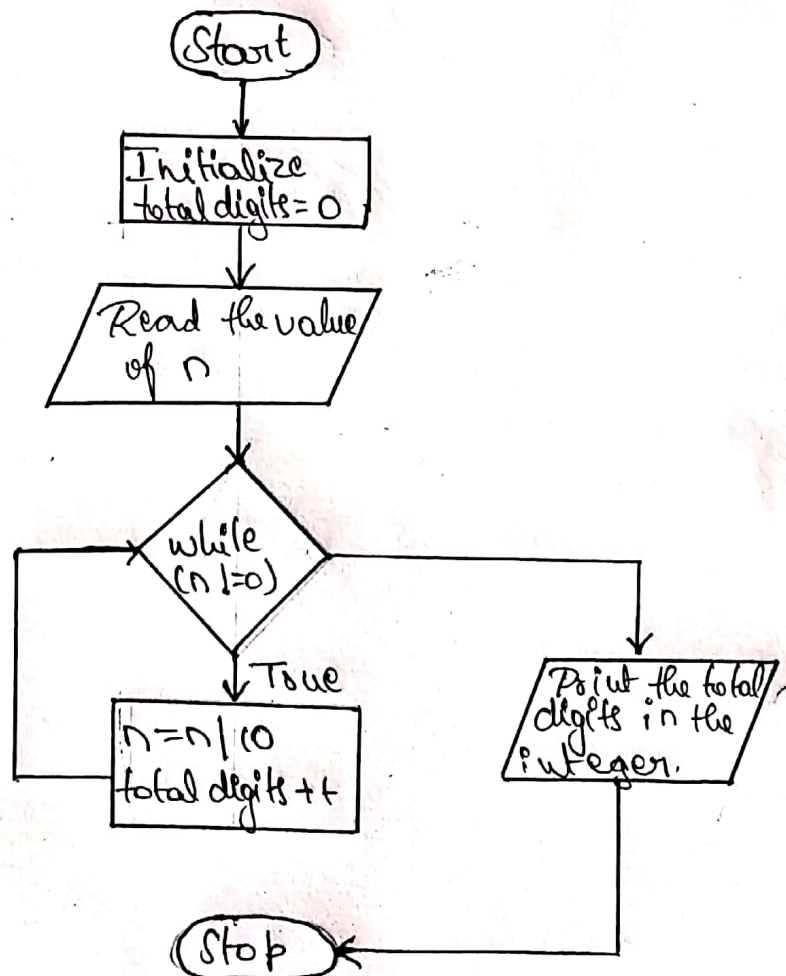 Start
Initialize
total digits = 0
Read the value
of n
while
(n != 0)
True
n = n / 10
total digits ++
Print the total
digits in the
integer.
Stop